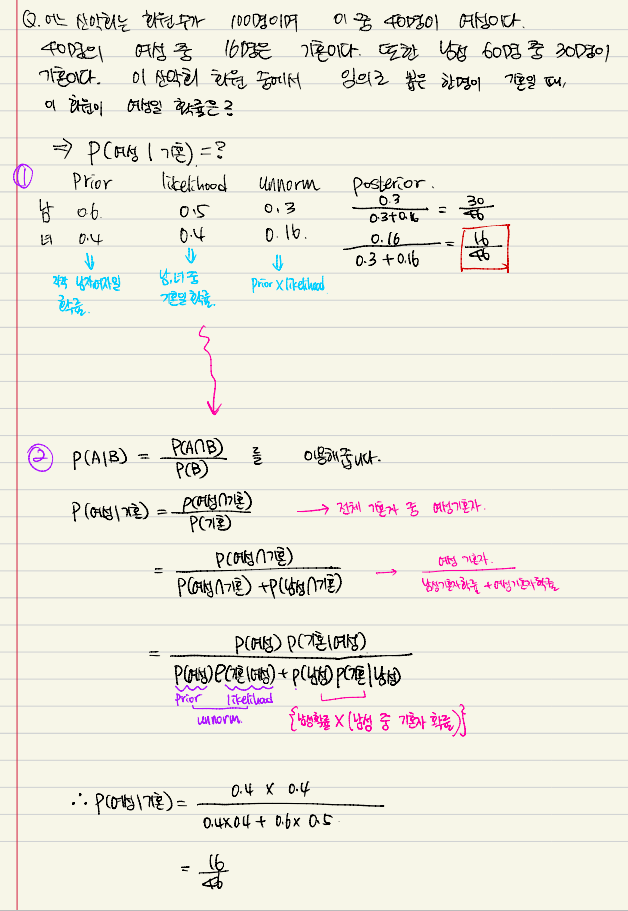 Q. 어느 산악회는 회원수가 100명이며 이 중 40명이 여성이다.
40명의 여성 중 16명은 기혼이다. 또한 남성 60명 중 30명이
기혼이다. 이 산악회 회원 중에서 임의로 뽑은 한명이 기혼일 때,
이 회원이 여성일 확률은?
⇒ P(여성 | 기혼) = ?
① Prior likelihood unnorm posterior.
남 0.6. 0.5 0.3 0.3 / 0.3+0.16 = 30/46
녀 0.4 0.4 0.16. 0.16 / 0.3 + 0.16 = 16/46
각각 남자여자일 확률. 남,녀 중 기혼일 확률. Prior X likelihood
② P(A|B) = P(A∩B) / P(B) 를 이용해줍니다.
P(여성|기혼) = P(여성∩기혼) / P(기혼) → 전체 기혼자 중 여성기혼자.
= P(여성∩기혼) / P(여성∩기혼) + P(남성∩기혼) → 여성 기혼자. / 남성기혼자확률 + 여성기혼자확률
= P(여성) P(기혼|여성) / P(여성)P(기혼|여성) + P(남성)P(기혼|남성)
prior likelihood
unnorm. {남성확률 X (남성 중 기혼자 확률)}
∴ P(여성|기혼) = 0.4 × 0.4 / 0.4×0.4 + 0.6 × 0.5.
= 16/46